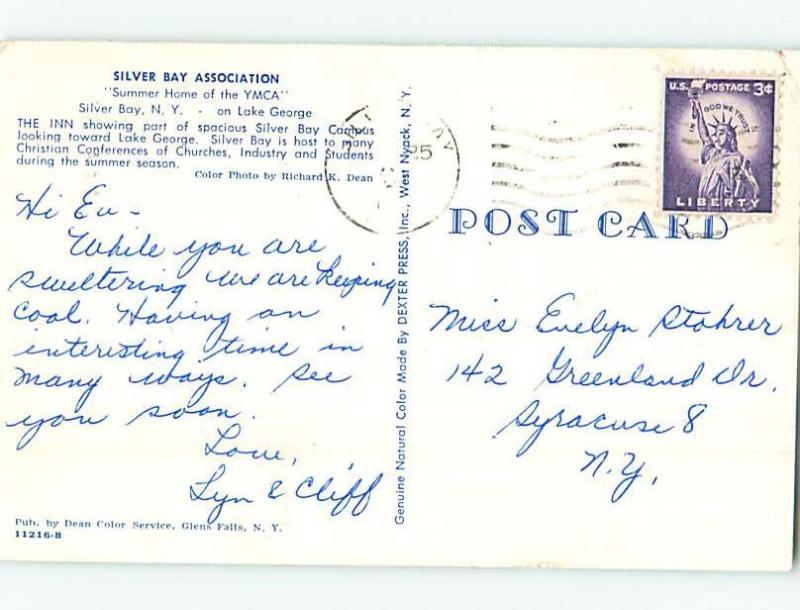 SILVER BAY ASSOCIATION
"Summer Home of the YMCA"
Silver Bay, N. Y. - on Lake George
THE INN showing part of spacious Silver Bay Campus
looking toward Lake George. Silver Bay is host to many
Christian Conferences of Churches, Industry and Students
during the summer season.
Color Photo by Richard K. Dean
Hi Ev-
While you are
sweltering we are keeping
cool. Having an
interesting time in
many ways. See
you soon.
Love,
Lyn & Cliff
Pub. by Dean Color Service, Glens Falls, N. Y.
11216-B
Genuine Natural Color Made by DEXTER PRESS, Inc., West Nyack, N. Y.
25
U.S. POSTAGE 3¢
IN GOD WE TRUST
LIBERTY
POST CARD
Miss Evelyn Stohrer
142 Greenland Dr.
Syracuse 8
N.Y.